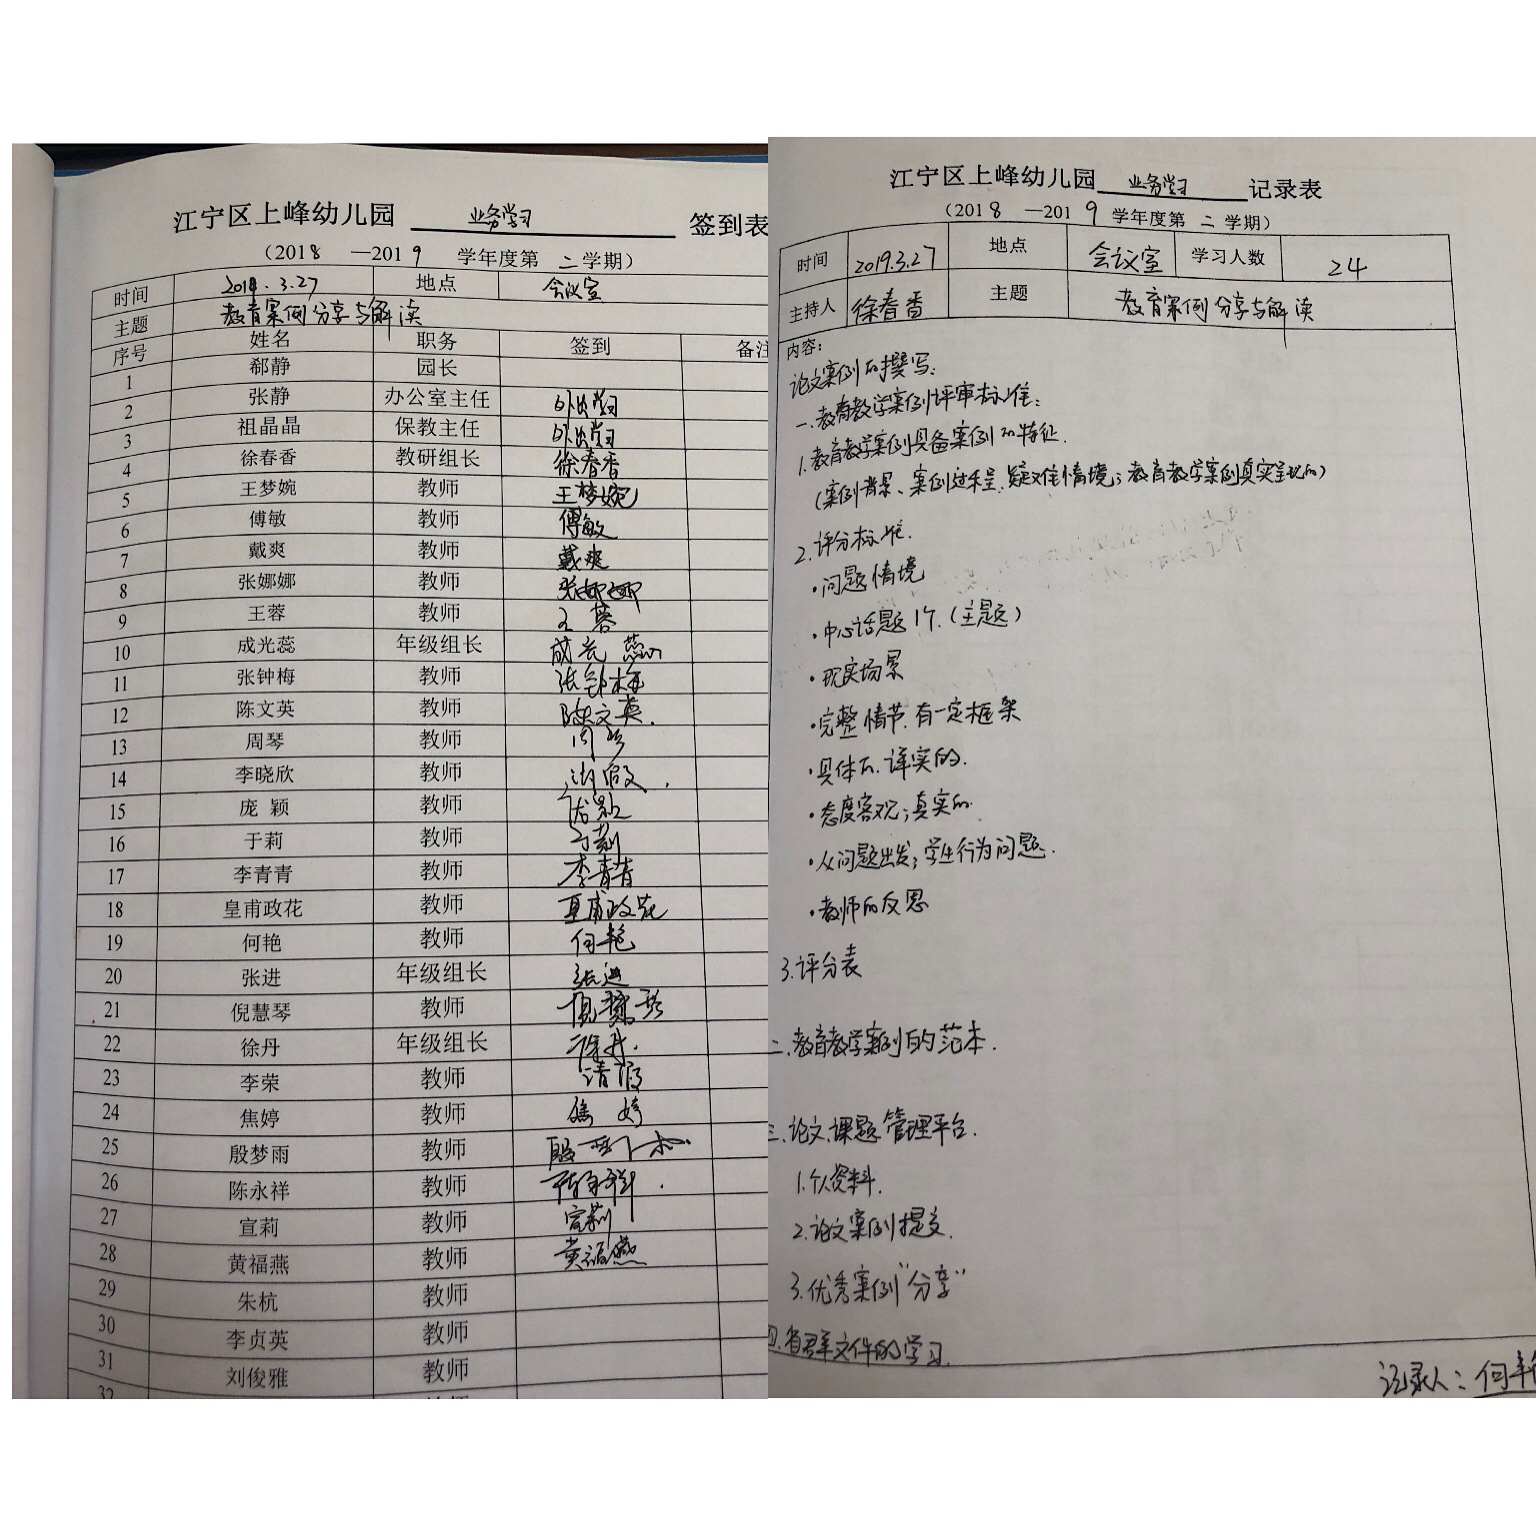 江宁区上峰幼儿园 业务学习 签到表
（2018—2019 学年度第 二 学期）
时间 2019.3.27 地点 会议室
主题 教育案例分享与解读
序号 姓名 职务 签到 备注
1 郗静 园长
2 张静 办公室主任 外出学习
3 祖晶晶 保教主任 外出学习
4 徐春香 教研组长 徐春香
5 王梦婉 教师 王梦婉
6 傅敏 教师 傅敏
7 戴爽 教师 戴爽
8 张娜娜 教师 张娜娜
9 王蓉 教师 王蓉
10 成光蕊 年级组长 成光蕊
11 张钟梅 教师 张钟梅
12 陈文英 教师 陈文英.
13 周琴 教师 周琴
14 李晓欣 教师
15 庞 颖 教师 庞颖
16 于莉 教师 于莉
17 李青青 教师 李青青
18 皇甫政花 教师 皇甫政花
19 何艳 教师 何艳
20 张进 年级组长 张进
21 倪慧琴 教师 倪慧琴
22 徐丹 年级组长 徐丹.
23 李荣 教师 请假
24 焦婷 教师 焦婷
25 殷梦雨 教师 殷梦雨
26 陈永祥 教师 陈永祥.
27 宣莉 教师 宣莉
28 黄福燕 教师 黄福燕
29 朱杭 教师
30 李贞英 教师
31 刘俊雅 教师
32
江宁区上峰幼儿园 业务学习 记录表
（2018—2019 学年度第 二 学期）
时间 2019.3.27 地点 会议室 学习人数 24
主持人 徐春香 主题 教育案例分享与解读
内容：
论文案例的撰写：
一.教育教学案例评审标准：
1.教育教学案例具备案例的特征.
（案例背景、案例过程、疑难情境；教育教学案例真实呈现的）
2.评分标准.
·问题情境
·中心话题1个.（主题）
·现实场景
·完整情节.有一定框架
·具体的、详实的.
·态度客观；真实的.
·从问题出发；学生行为问题.
·教师的反思
3.评分表
二.教育教学案例的范本.
三.论文、课题管理平台.
1.个人资料.
2.论文案例提交.
3.优秀案例“分享”
四.省群文件的学习.
记录人：何艳